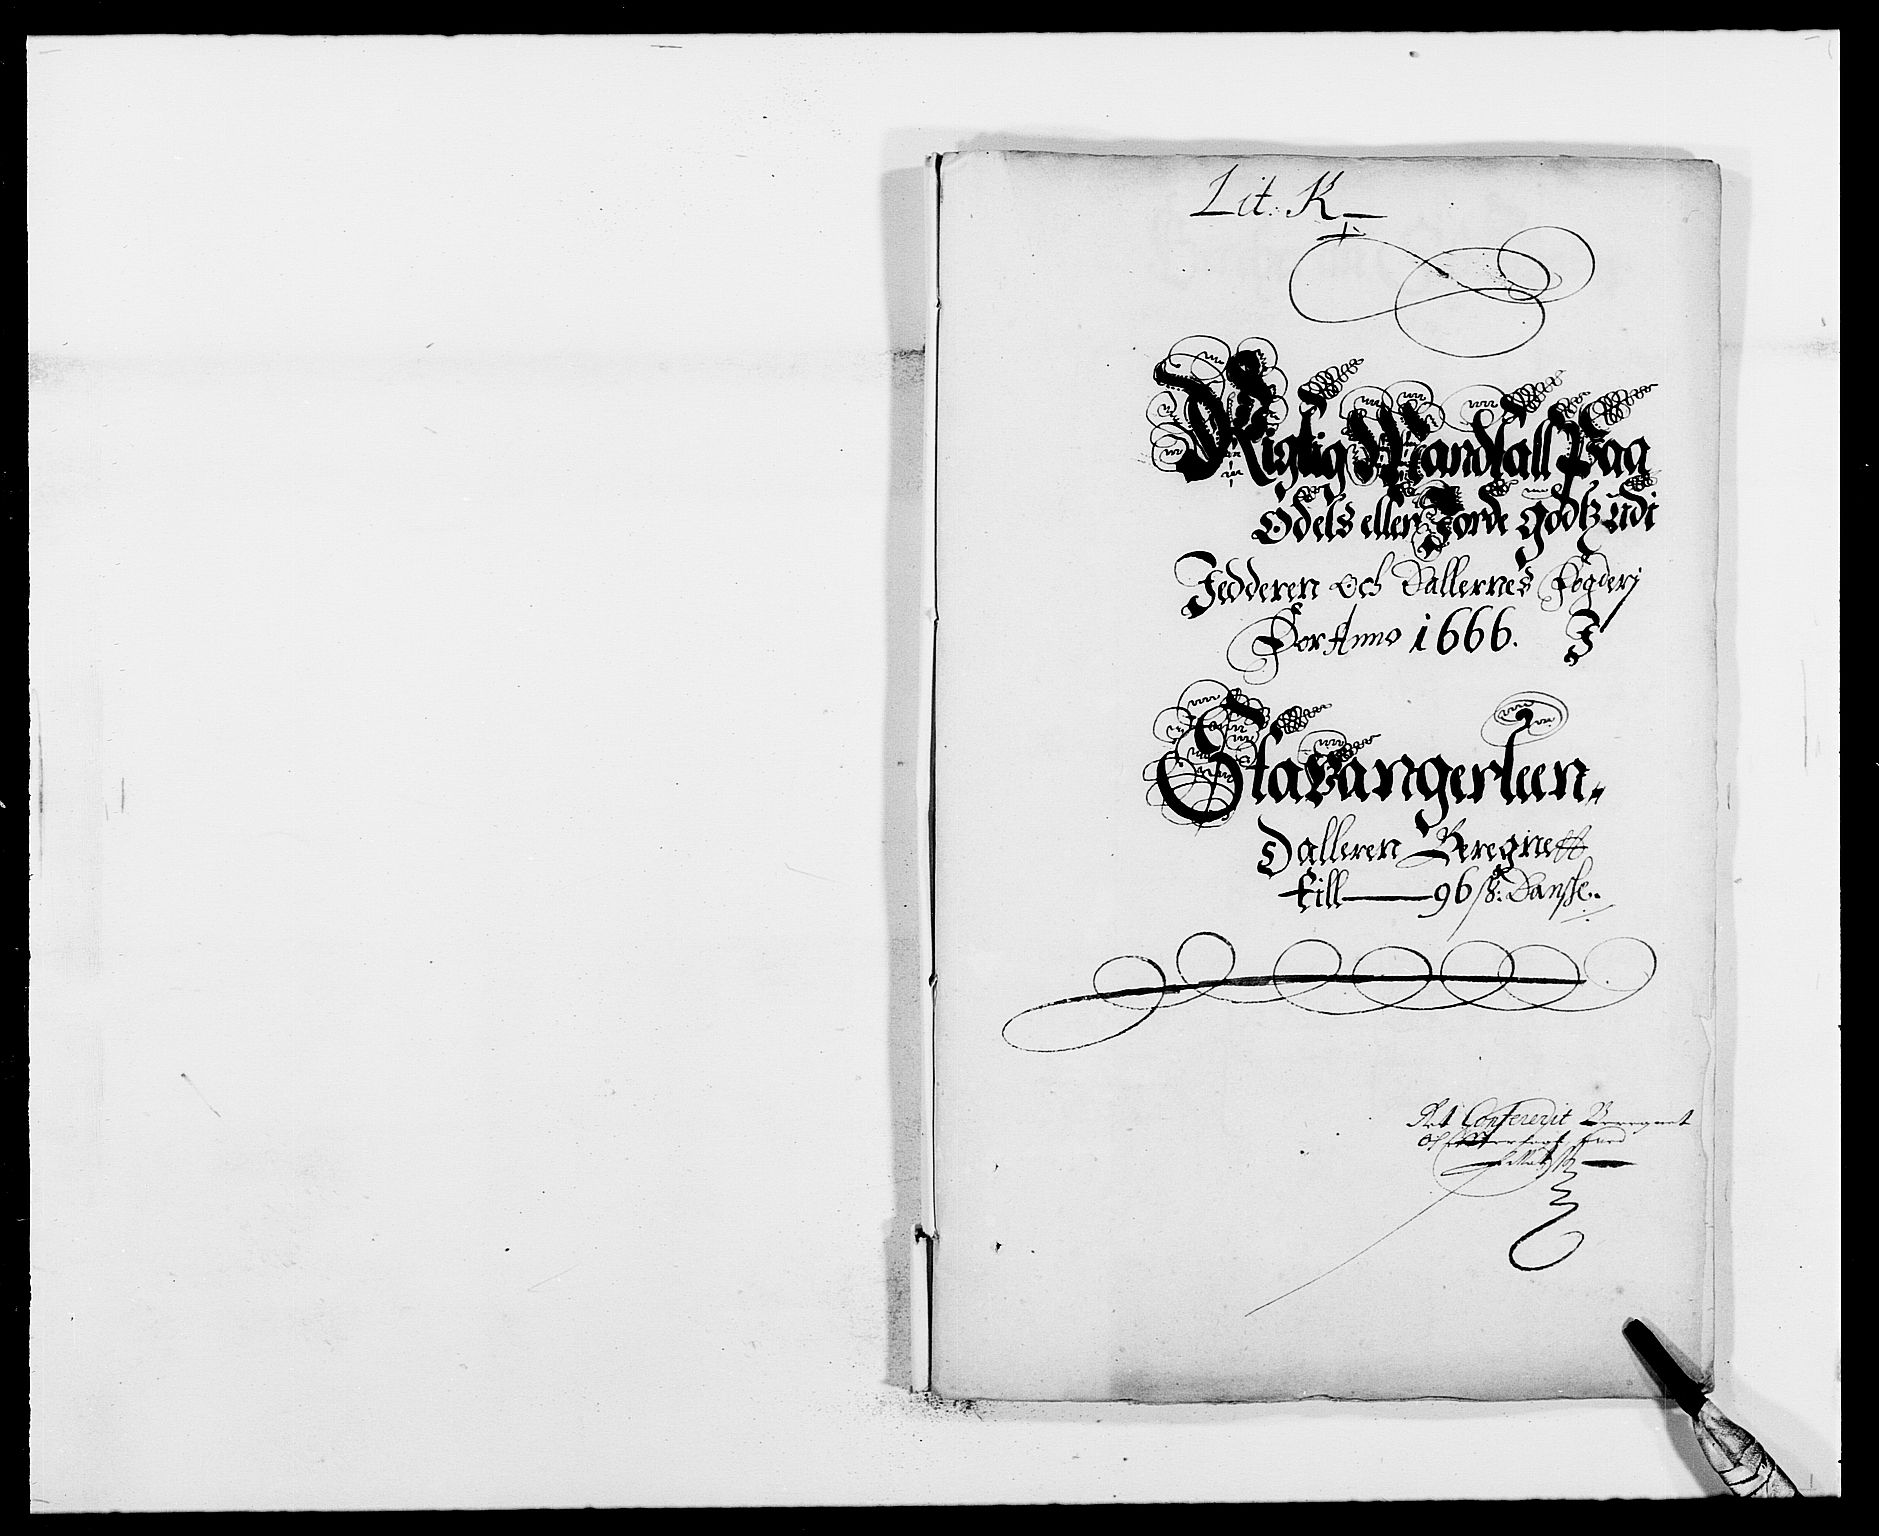 Lit. K
Rigtig Mandtall Paa
Odels eller Jorde godtz udi
Jedderen och Dallernes Fogderj
For Anno 1666. I
Stavangerleen
Dalleren Beregnett
till — 96 sk: Danske.
Ret Confererit Beregnet